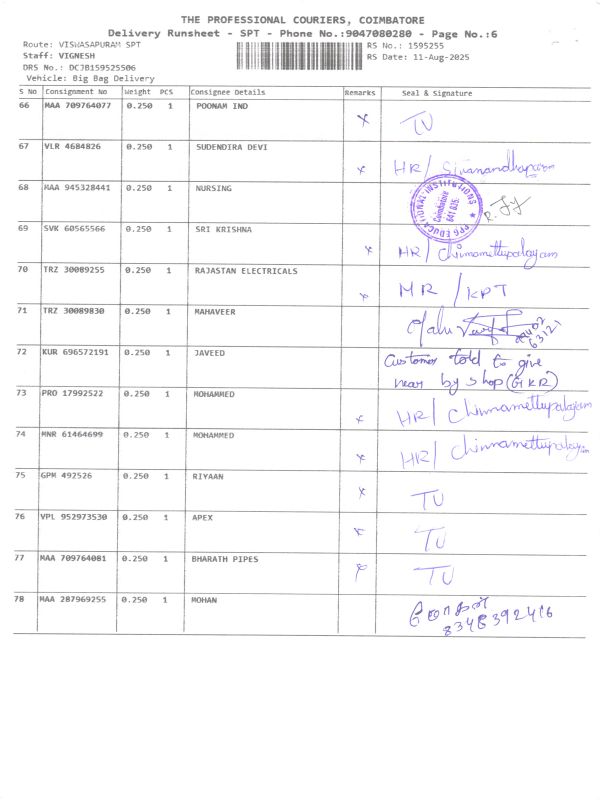 THE PROFESSIONAL COURIERS, COIMBATORE
Delivery Runsheet - SPT - Phone No.:9047080280 - Page No.:6
Route: VISWASAPURAM SPT RS No.: 1595255
Staff: VIGNESH RS Date: 11-Aug-2025
DRS No.: DCJB159525506
Vehicle: Big Bag Delivery
S No Consignment No Weight PCS Consignee Details Remarks Seal & Signature
66 MAA 709764077 0.250 1 POONAM IND x TU
67 VLR 4684826 0.250 1 SUDENDIRA DEVI x HR/ Sivanandhapuram
68 MAA 945328441 0.250 1 NURSING
PPG EDUCATIONAL INSTITUTIONS
Coimbatore
641 035.
69 SVK 60565566 0.250 1 SRI KRISHNA x HR/ Chinnamettupalayam
70 TRZ 30089255 0.250 1 RAJASTAN ELECTRICALS x MR /KPT
71 TRZ 30089830 0.250 1 MAHAVEER
72 KUR 696572191 0.250 1 JAVEED Customer told to give
near by shop (GKR)
73 PRO 17992522 0.250 1 MOHAMMED x HR/ Chinnamettupalayam
74 MNR 61464699 0.250 1 MOHAMMED x HR/ Chinnamettupalayam
75 GPM 492526 0.250 1 RIYAAN x TU
76 VPL 952973530 0.250 1 APEX x TU
77 MAA 709764081 0.250 1 BHARATH PIPES x TU
78 MAA 287969255 0.250 1 MOHAN மோகன்
8346392416